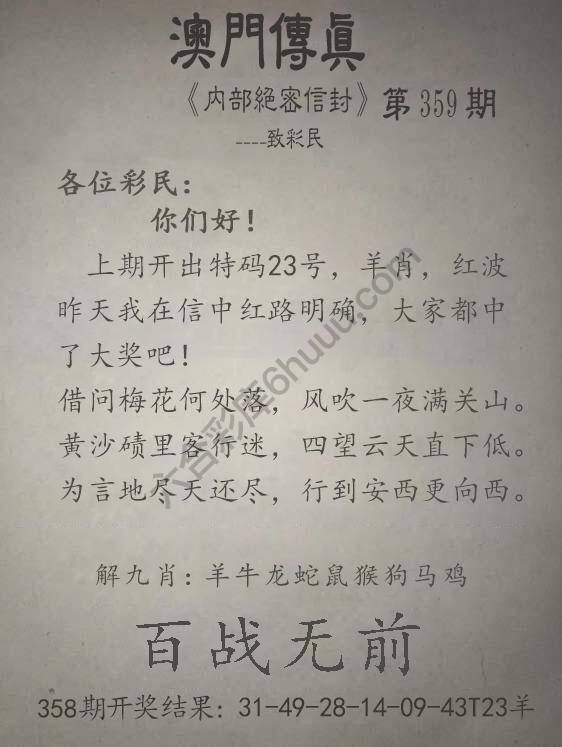 澳門傳眞
《内部絕密信封》第359期
----致彩民
各位彩民：
你们好！
上期开出特码23号，羊肖，红波
昨天我在信中红路明确，大家都中
了大奖吧！
借问梅花何处落，风吹一夜满关山。
黄沙碛里客行迷，四望云天直下低。
为言地尽天还尽，行到安西更向西。
六合彩库6huuu.com
解九肖：羊牛龙蛇鼠猴狗马鸡
百战无前
358期开奖结果：31-49-28-14-09-43T23羊